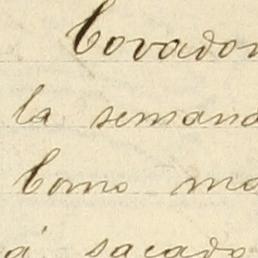 Covadon
la semana
Como ma
á sacado